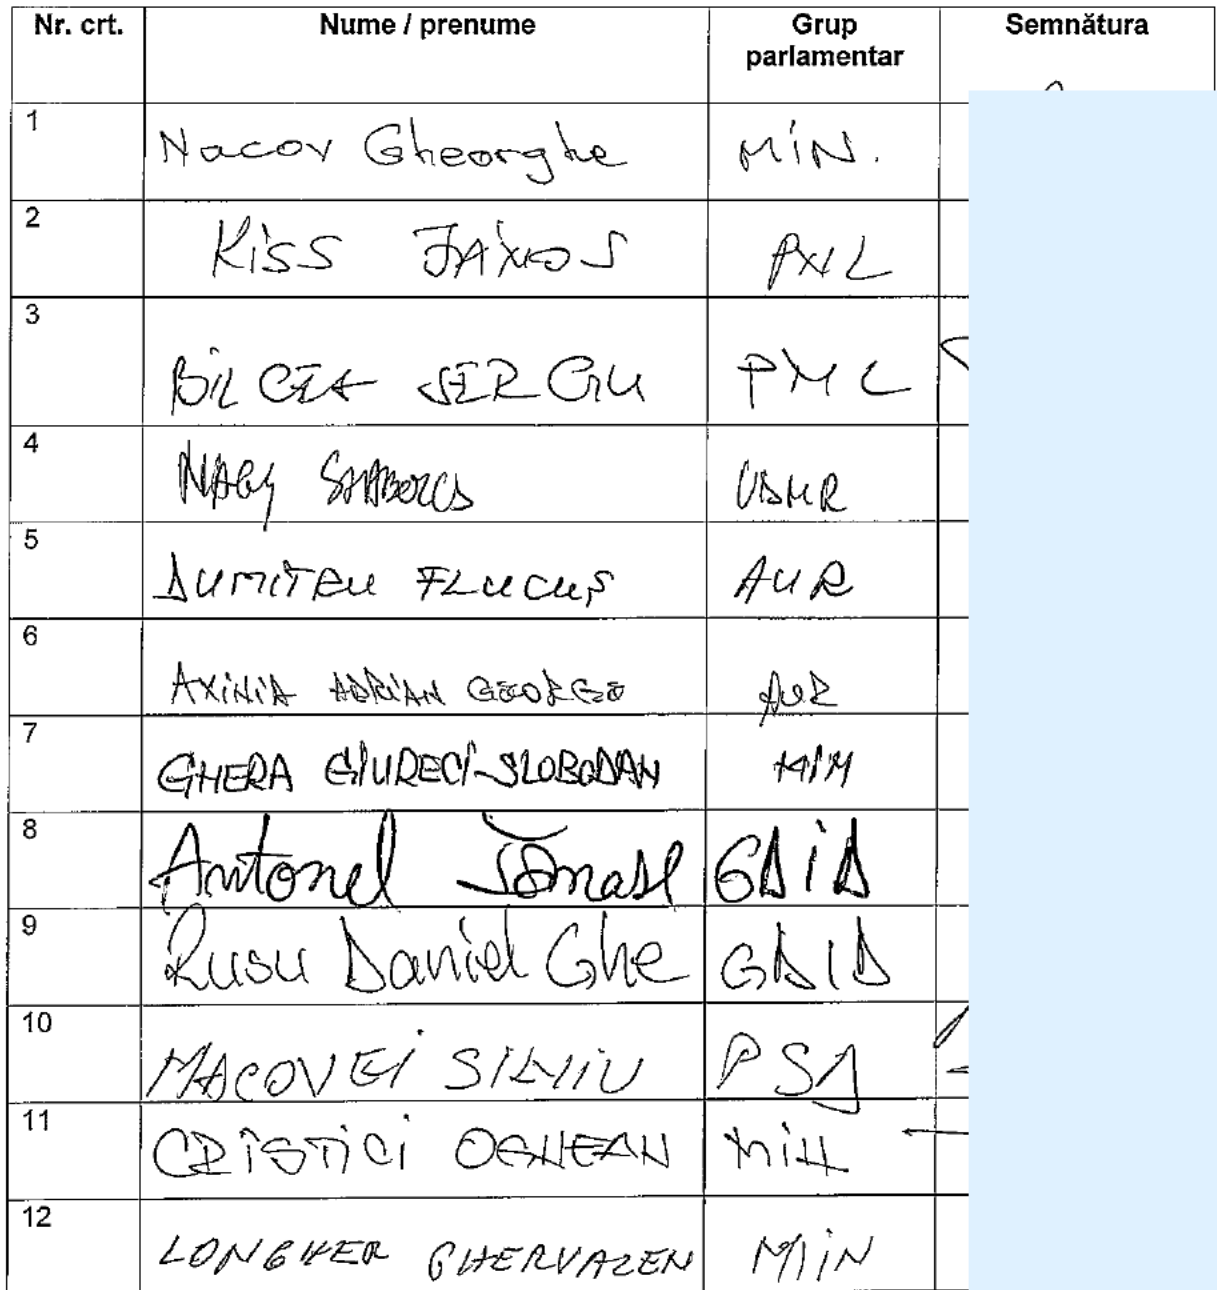 Nr. crt. Nume / prenume Grup parlamentar Semnătura
1 Nacov Gheorghe MiN.
2 KiSS JANOS PNL
3 BILCEA SERGIU PNL
4 NAGY SZABOLCS UDMR
5 DUMITRU FLUCUŞ AUR
6 AXINIA ADRIAN GEORGE AUR
7 GHERA GIURECI-SLOBODAN MIM
8 Antonel Tănase GDID
9 Rusu Daniel Ghe GDID
10 MACOVEI SILVIU PSD
11 CRISTICI OGNEAN MiN
12 LONGHER GHERVAZEN MIN